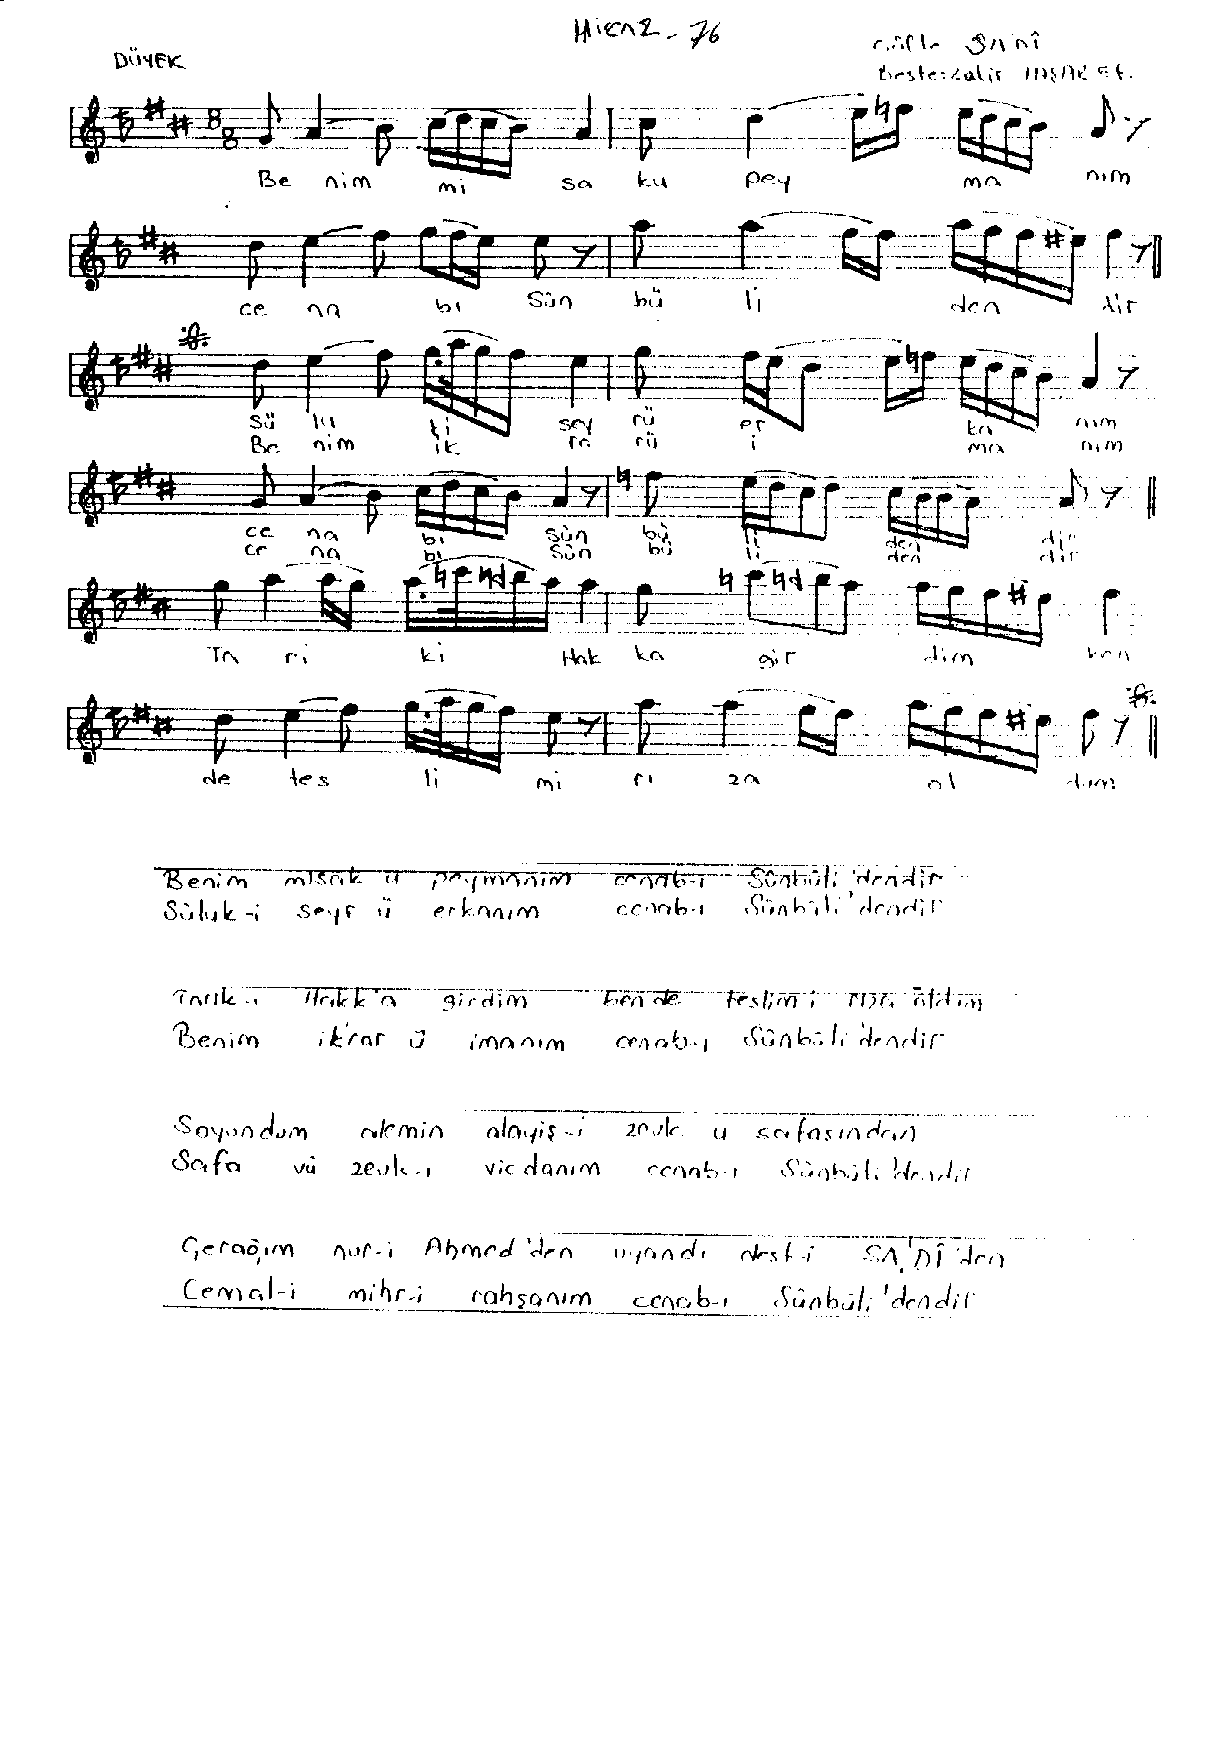 Hicaz - 76
DÜYEK
Güfte SA'DÎ
Beste: Zakir YAŞAR Ef.
8 8
Be nim mi sa ku pey ma nım
ce na bı Sün bü li den dir
sü lu ki sey rü er ka nım
Be nim ik ra rü i ma nım
ce na bı sün bü li den dir
ce na bı Sün bü li den dir
Ta ri ki Hak ka gir dim ben
de tes li mi rı za al dım
Benim misak ü peymanım cenab-ı Sünbüli'dendir
Sülûk-i seyr ü erkanım cenab-ı Sünbüli'dendir
Tarik-ı Hakk'a girdim bende teslim-i rıza aldım
Benim ikrar ü imanım cenab-ı Sünbüli'dendir
Soyundum alemin alayiş-i zevk u safasından
Safa vü zevk-ı vicdanım cenab-ı Sünbüli'dendir
Çerağım nur-i Ahmed'den uyandı dest-i SA'DÎ'den
Cemal-i mihr-i rahşanım cenab-ı Sünbüli'dendir